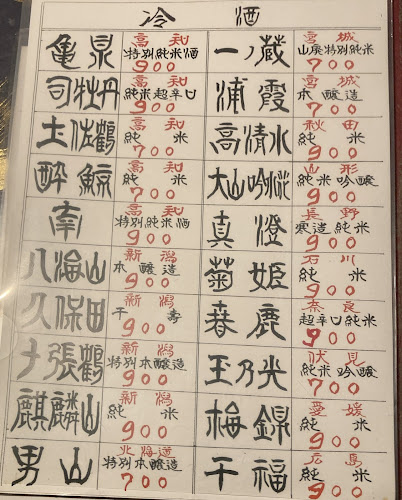 冷酒
亀泉
高知
特別純米酒
900
司牡丹
高知
純米超辛口
900
土佐鶴
高知
純米
700
酔鯨
高知
純米
700
南
高知
特別純米酒
900
八海山
新潟
本醸造
900
久保田
新潟
千寿
900
〆張鶴
新潟
特別本醸造
900
麒麟山
新潟
純米
900
男山
北海道
特別本醸造
700
一ノ蔵
宮城
山廃特別純米
700
浦霞
宮城
本醸造
700
高清水
秋田
純米
900
大山
山形
純米吟醸
900
真澄
長野
寒造純米
900
菊姫
石川
純米
900
春鹿
奈良
超辛口純米
900
玉乃光
伏見
純米吟醸
700
梅錦
愛媛
900
千福
広島
900